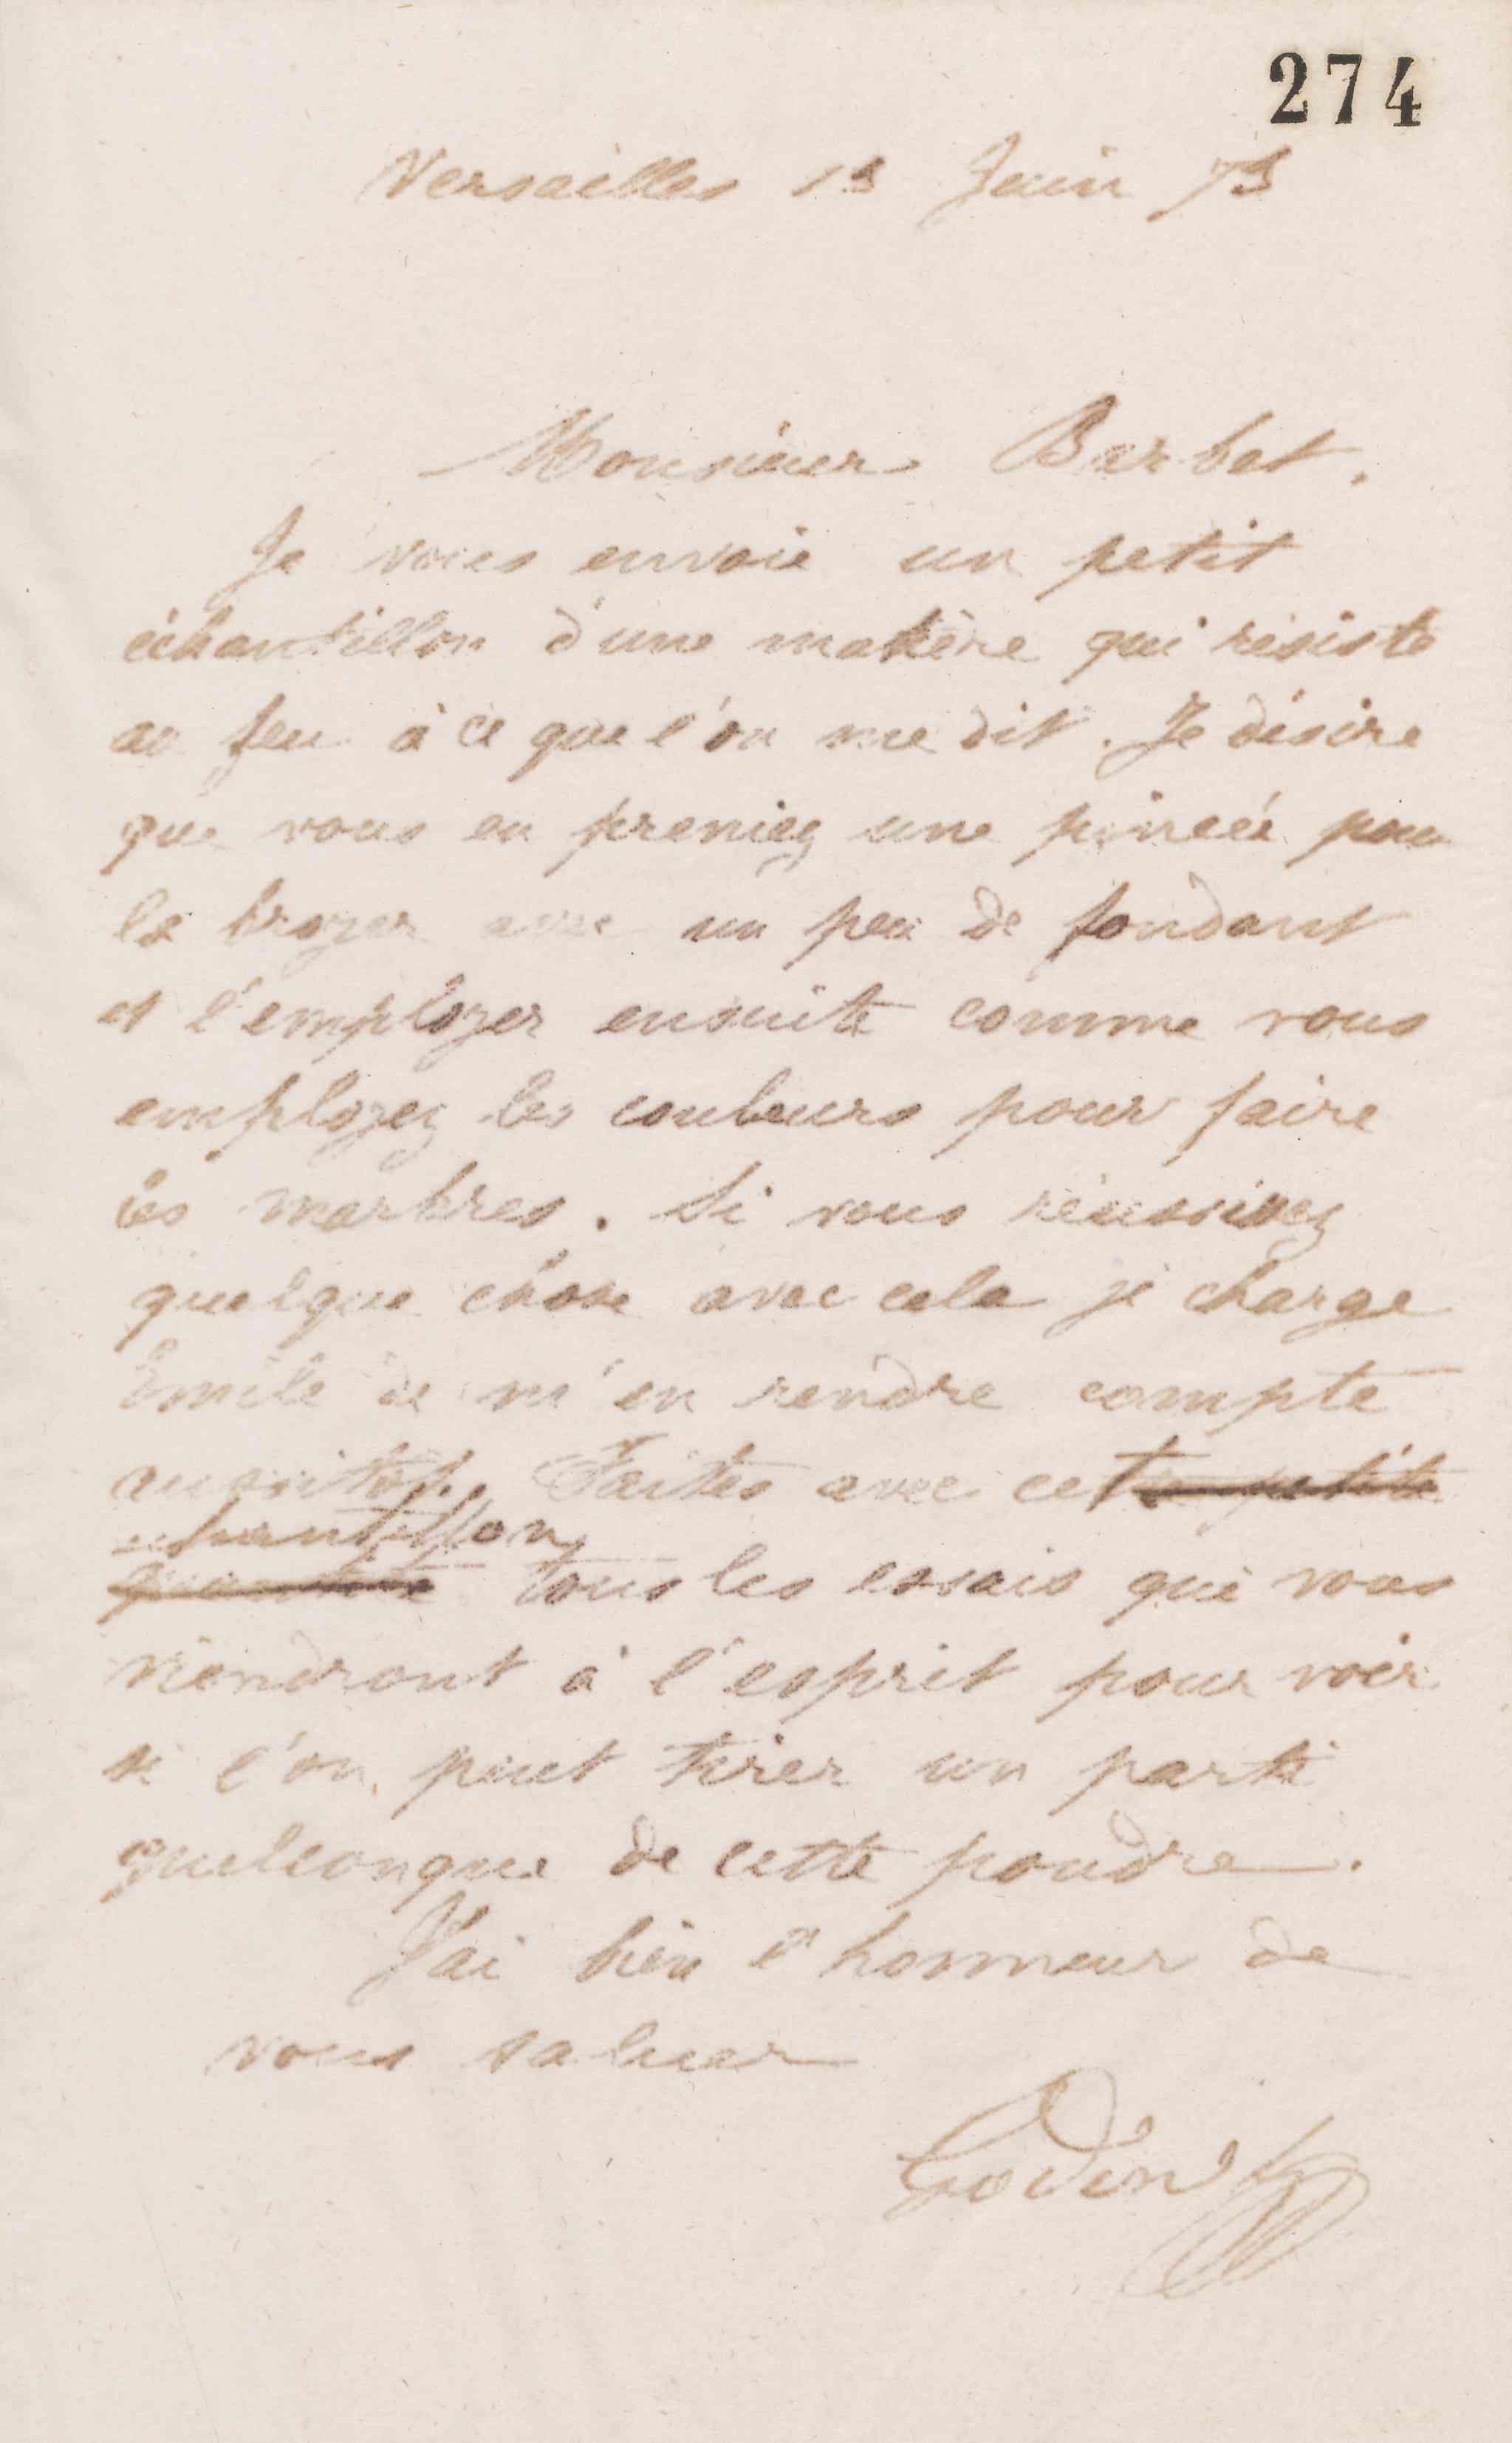 274
Versailles 13 Juin 73
Monsieur Barbet.
Je vous envoie un petit
échantillon d'une matière qui résiste
au feu à ce que l'on me dit. Je désire
que vous en preniez une pincée pour
la broyer avec un peu de fondant
et l'employer ensuite comme vous
employez les couleurs pour faire
les marbres. Si vous réussissez
quelque chose avec cela je charge
Emile de m'en rendre compte
aussitôt. Faites avec cette petite
échantillon
quantité tous les essais qui vous
viendront à l'esprit pour voir
si l'on peut tirer un parti
quelconque de cette poudre.
J'ai bien l'honneur de
vous saluer
Godin